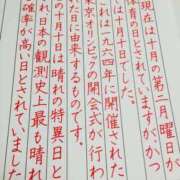 現在は十月の第二月曜日が
体育の日とされていますが、かつ
は十月十日でした。
れは一九六四年に開催された
東京オリンピックの開会式が行わ
日に由来するものです。
十月十日は晴れの特異日と
れ日本の観測史上最も晴れ
確率が高い日とされていました